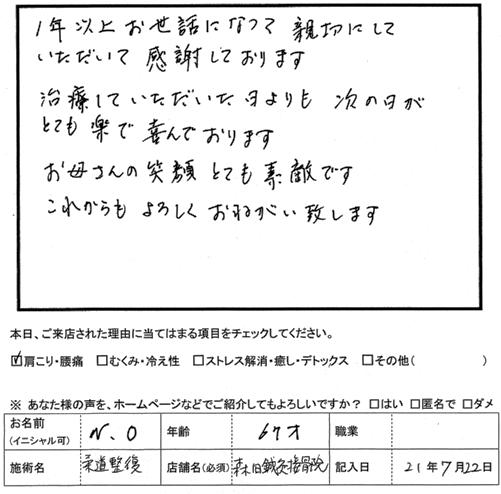 1年以上お世話になって 親切にして
いただいて 感謝しております
治療していただいた日よりも 次の日が
とても楽で 喜んでおります
お母さんの笑顔 とても素敵です
これからも よろしく おねがい致します
本日、ご来店された理由に当てはまる項目をチェックしてください。
☑肩こり・腰痛 □むくみ・冷え性 □ストレス解消・癒し・デトックス □その他( )
※ あなた様の声を、ホームページなどでご紹介してもよろしいですか? □はい □匿名で □ダメ
お名前 (イニシャル可) N.O 年齢 67才 職業
施術名 柔道整復 店舗名(必須) 鍼灸接骨院 記入日 21年7月22日